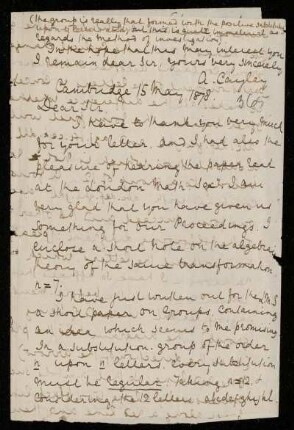 (the group is really that formed with the positive substitutions
upon 4 letters
regards the method of investigation
In the hope that this may interest you
I remain dear Sir, yours very sincerely
A. Cayley
Cambridge 15 May 1878
Dear Sir
I have to thank you very much
for your letter. And I had also the
pleasure of hearing the paper read
at the London Math. Soc. I am
very glad that you have given us
something for our Proceedings. I
enclose a short note on the algebraic
theory of the same transformation
n=7.
I have just written out for the
a short paper on Groups, containing
an idea which seems to me promising
In a substitution group of the order
n upon n letters, every substitution
must be regular. Taking n=12 &
considering the 12 letters abcdefghijkl